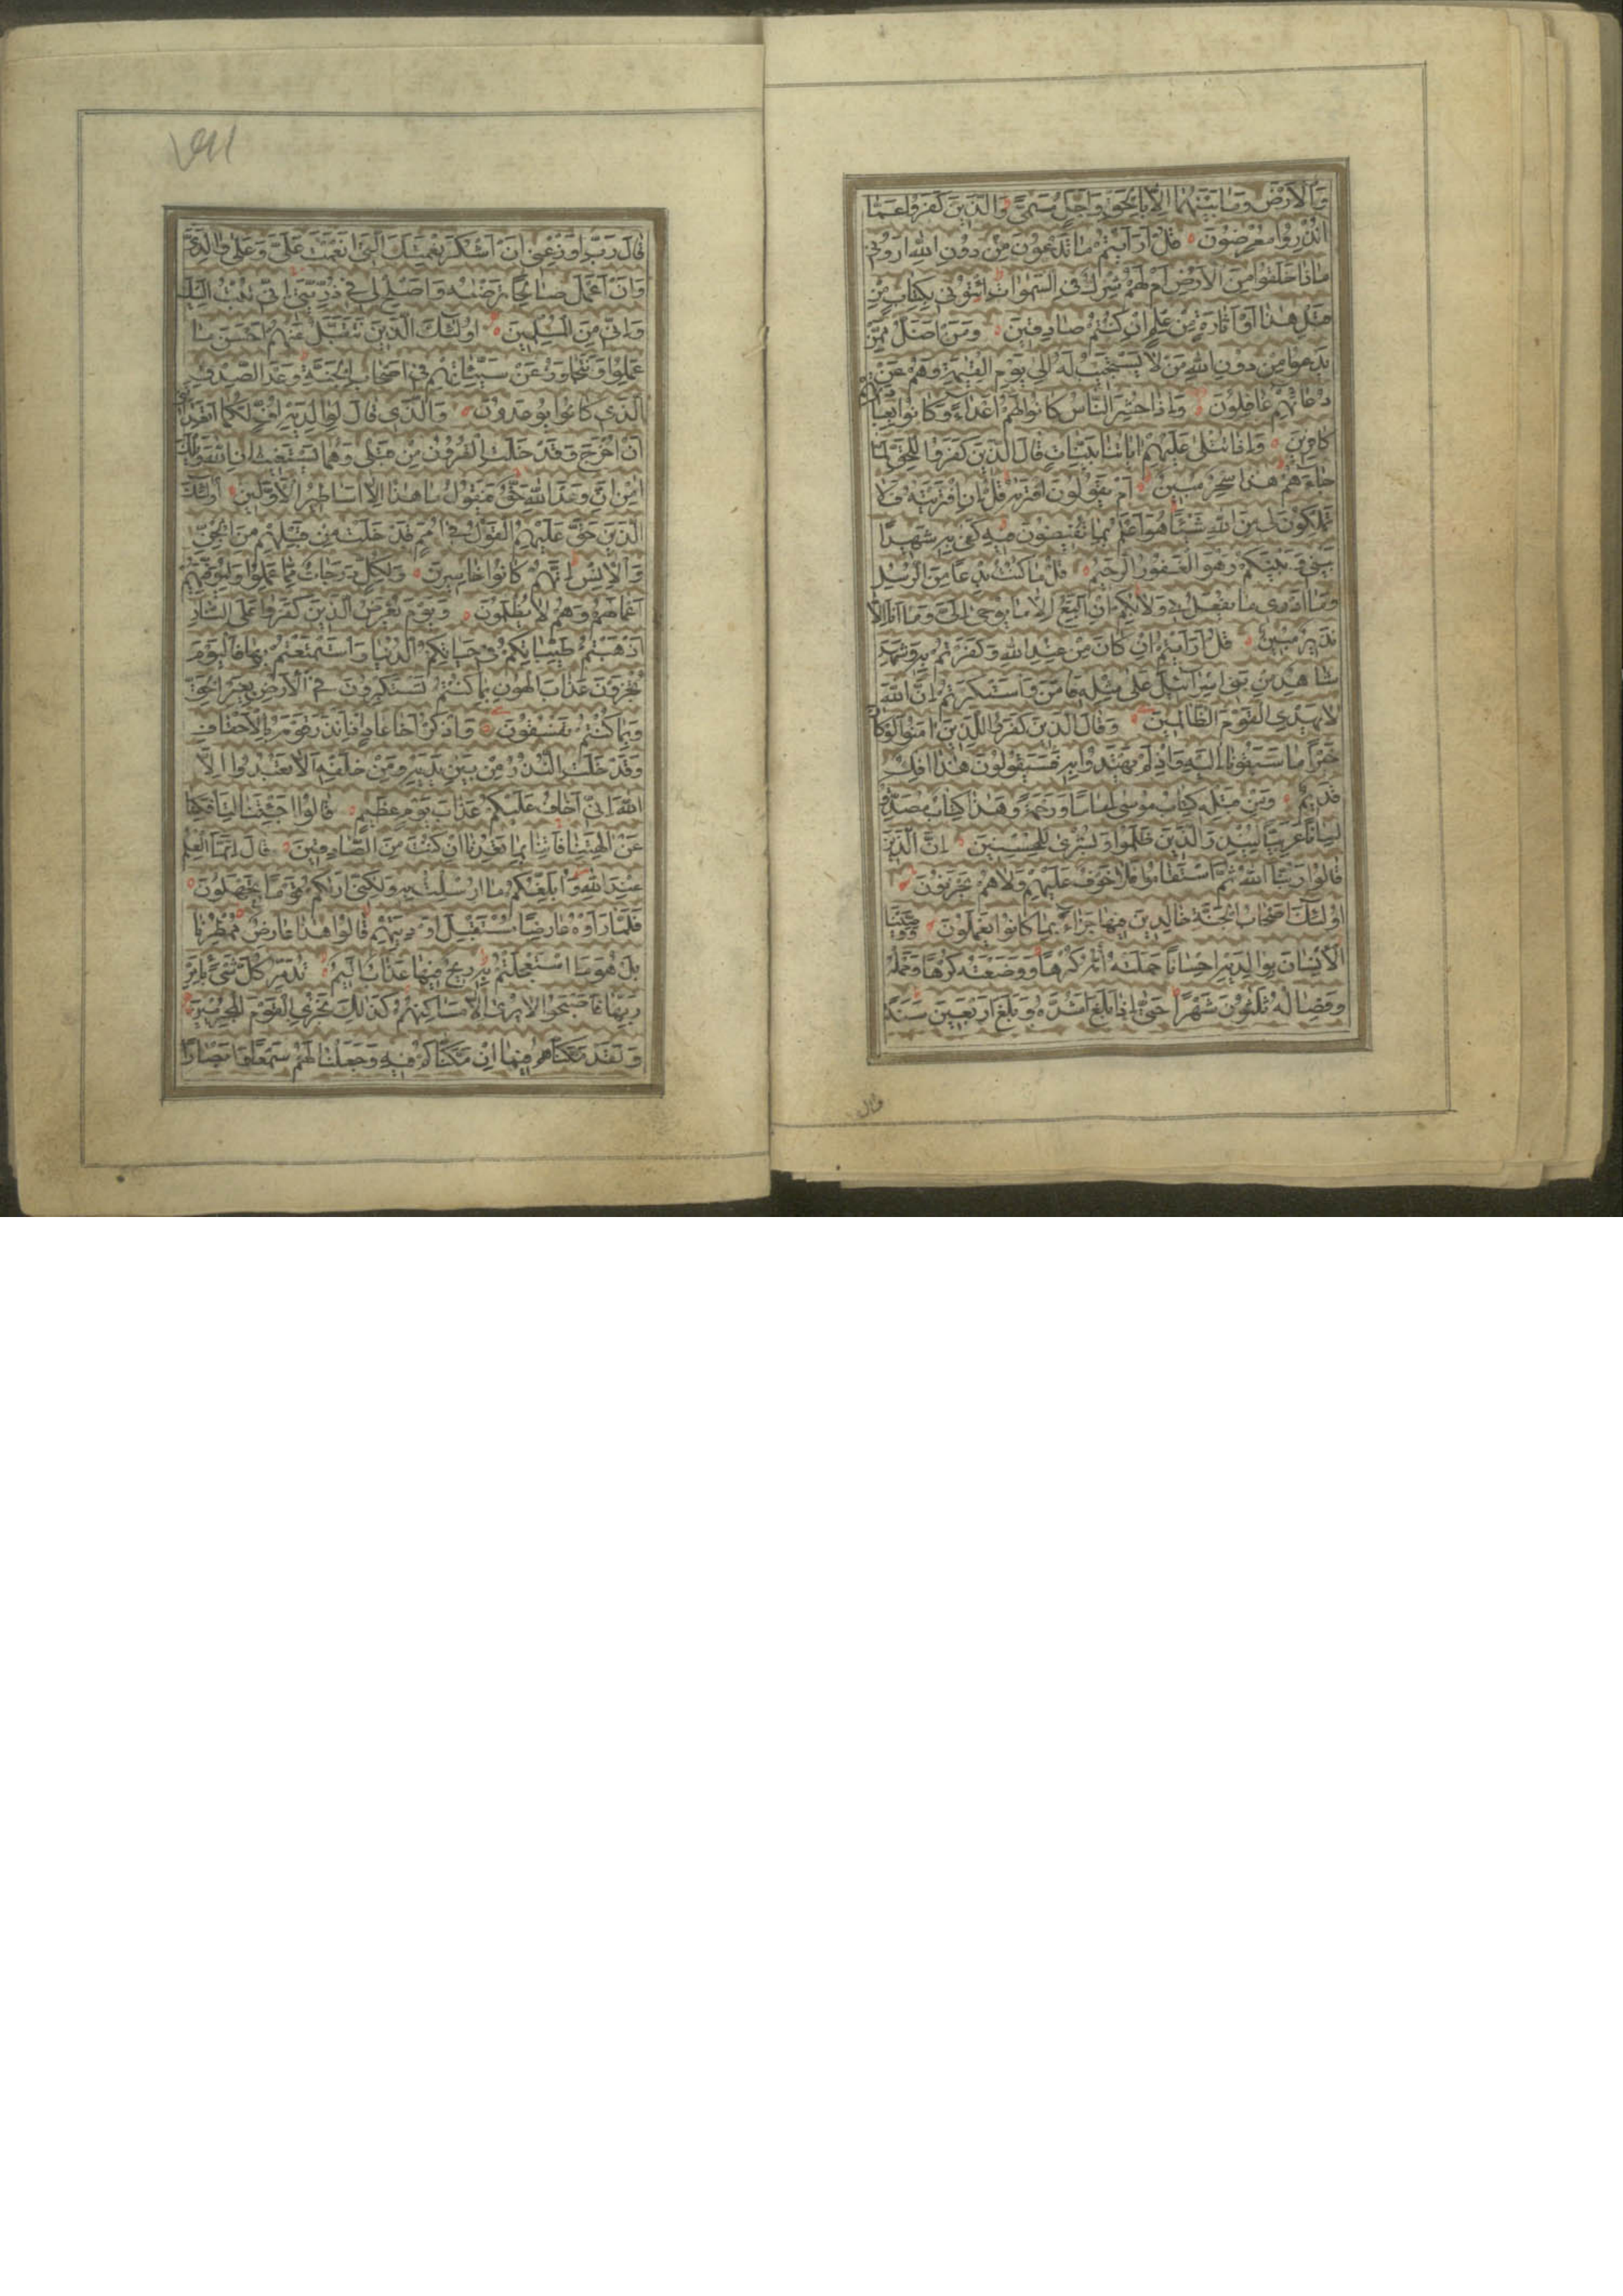 وَالْاَرْضَ وَمَا بَيْنَهُمَا اِلَّا بِالْحَقِّ وَاَجَلٍ مُسَمًّى وَالَّذِينَ كَفَرُوا عَمَّا
اُنْذِرُوا مُعْرِضُونَ قُلْ اَرَاَيْتُمْ مَا تَدْعُونَ مِنْ دُونِ اللهِ اَرُونِي
مَاذَا خَلَقُوا مِنَ الْاَرْضِ اَمْ لَهُمْ شِرْكٌ فِي السَّمٰوَاتِ ائْتُونِي بِكِتَابٍ مِنْ
قَبْلِ هٰذَا اَوْ اَثَارَةٍ مِنْ عِلْمٍ اِنْ كُنْتُمْ صَادِقِينَ وَمَنْ اَضَلُّ مِمَّنْ
يَدْعُوا مِنْ دُونِ اللهِ مَنْ لَا يَسْتَجِيبُ لَهُ اِلٰى يَوْمِ الْقِيٰمَةِ وَهُمْ عَنْ
دُعَائِهِمْ غَافِلُونَ وَاِذَا حُشِرَ النَّاسُ كَانُوا لَهُمْ اَعْدَاءً وَكَانُوا بِعِبَادَتِهِمْ
كَافِرِينَ وَاِذَا تُتْلٰى عَلَيْهِمْ اٰيَاتُنَا بَيِّنَاتٍ قَالَ الَّذِينَ كَفَرُوا لِلْحَقِّ لَمَّا
جَاءَهُمْ هٰذَا سِحْرٌ مُبِينٌ اَمْ يَقُولُونَ افْتَرٰيهُ قُلْ اِنِ افْتَرَيْتُهُ فَلَا
تَمْلِكُونَ لِي مِنَ اللهِ شَيْئًا هُوَ اَعْلَمُ بِمَا تُفِيضُونَ فِيهِ كَفٰى بِهِ شَهِيدًا
بَيْنِي وَبَيْنَكُمْ وَهُوَ الْغَفُورُ الرَّحِيمُ قُلْ مَا كُنْتُ بِدْعًا مِنَ الرُّسُلِ
وَمَا اَدْرِى مَا يُفْعَلُ بِي وَلَا بِكُمْ اِنْ اَتَّبِعُ اِلَّا مَا يُوحٰى اِلَىَّ وَمَا اَنَا اِلَّا
نَذِيرٌ مُبِينٌ قُلْ اَرَاَيْتُمْ اِنْ كَانَ مِنْ عِنْدِ اللهِ وَكَفَرْتُمْ بِهِ وَشَهِدَ
شَاهِدٌ مِنْ بَنِي اِسْرَائِيلَ عَلٰى مِثْلِهِ فَاٰمَنَ وَاسْتَكْبَرْتُمْ اِنَّ اللهَ
لَا يَهْدِي الْقَوْمَ الظَّالِمِينَ وَقَالَ الَّذِينَ كَفَرُوا لِلَّذِينَ اٰمَنُوا لَوْ كَانَ
خَيْرًا مَا سَبَقُونَا اِلَيْهِ وَاِذْ لَمْ يَهْتَدُوا بِهِ فَسَيَقُولُونَ هٰذَا اِفْكٌ
قَدِيمٌ وَمِنْ قَبْلِهِ كِتَابُ مُوسٰى اِمَامًا وَرَحْمَةً وَهٰذَا كِتَابٌ مُصَدِّقٌ
لِسَانًا عَرَبِيًّا لِيُنْذِرَ الَّذِينَ ظَلَمُوا وَبُشْرٰى لِلْمُحْسِنِينَ اِنَّ الَّذِينَ
قَالُوا رَبُّنَا اللهُ ثُمَّ اسْتَقَامُوا فَلَا خَوْفٌ عَلَيْهِمْ وَلَا هُمْ يَحْزَنُونَ
اُولٰئِكَ اَصْحَابُ الْجَنَّةِ خَالِدِينَ فِيهَا جَزَاءً بِمَا كَانُوا يَعْمَلُونَ وَوَصَّيْنَا
الْاِنْسَانَ بِوَالِدَيْهِ اِحْسَانًا حَمَلَتْهُ اُمُّهُ كُرْهًا وَوَضَعَتْهُ كُرْهًا وَحَمْلُهُ
وَفِصَالُهُ ثَلٰثُونَ شَهْرًا حَتّٰى اِذَا بَلَغَ اَشُدَّهُ وَبَلَغَ اَرْبَعِينَ سَنَةً
قال
قَالَ رَبِّ اَوْزِعْنِي اَنْ اَشْكُرَ نِعْمَتَكَ الَّتِي اَنْعَمْتَ عَلَيَّ وَعَلٰى وَالِدَيَّ
وَاَنْ اَعْمَلَ صَالِحًا تَرْضٰيهُ وَاَصْلِحْ لِي فِي ذُرِّيَّتِي اِنِّي تُبْتُ اِلَيْكَ
وَاِنِّي مِنَ الْمُسْلِمِينَ اُولٰئِكَ الَّذِينَ نَتَقَبَّلُ عَنْهُمْ اَحْسَنَ مَا
عَمِلُوا وَنَتَجَاوَزُ عَنْ سَيِّئَاتِهِمْ فِي اَصْحَابِ الْجَنَّةِ وَعْدَ الصِّدْقِ
الَّذِي كَانُوا يُوعَدُونَ وَالَّذِي قَالَ لِوَالِدَيْهِ اُفٍّ لَكُمَا اَتَعِدَانِنِي
اَنْ اُخْرَجَ وَقَدْ خَلَتِ الْقُرُونُ مِنْ قَبْلِي وَهُمَا يَسْتَغِيثَانِ اللهَ وَيْلَكَ
اٰمِنْ اِنَّ وَعْدَ اللهِ حَقٌّ فَيَقُولُ مَا هٰذَا اِلَّا اَسَاطِيرُ الْاَوَّلِينَ اُولٰئِكَ
الَّذِينَ حَقَّ عَلَيْهِمُ الْقَوْلُ فِي اُمَمٍ قَدْ خَلَتْ مِنْ قَبْلِهِمْ مِنَ الْجِنِّ
وَالْاِنْسِ اِنَّهُمْ كَانُوا خَاسِرِينَ وَلِكُلٍّ دَرَجَاتٌ مِمَّا عَمِلُوا وَلِيُوَفِّيَهُمْ
اَعْمَالَهُمْ وَهُمْ لَا يُظْلَمُونَ وَيَوْمَ يُعْرَضُ الَّذِينَ كَفَرُوا عَلَى النَّارِ
اَذْهَبْتُمْ طَيِّبَاتِكُمْ فِي حَيَاتِكُمُ الدُّنْيَا وَاسْتَمْتَعْتُمْ بِهَا فَالْيَوْمَ
تُجْزَوْنَ عَذَابَ الْهُونِ بِمَا كُنْتُمْ تَسْتَكْبِرُونَ فِي الْاَرْضِ بِغَيْرِ الْحَقِّ
وَبِمَا كُنْتُمْ تَفْسُقُونَ وَاذْكُرْ اَخَا عَادٍ اِذْ اَنْذَرَ قَوْمَهُ بِالْاَحْقَافِ
وَقَدْ خَلَتِ النُّذُرُ مِنْ بَيْنِ يَدَيْهِ وَمِنْ خَلْفِهِ اَلَّا تَعْبُدُوا اِلَّا
اللهَ اِنِّي اَخَافُ عَلَيْكُمْ عَذَابَ يَوْمٍ عَظِيمٍ قَالُوا اَجِئْتَنَا لِتَاْفِكَنَا
عَنْ اٰلِهَتِنَا فَاْتِنَا بِمَا تَعِدُنَا اِنْ كُنْتَ مِنَ الصَّادِقِينَ قَالَ اِنَّمَا الْعِلْمُ
عِنْدَ اللهِ وَاُبَلِّغُكُمْ مَا اُرْسِلْتُ بِهِ وَلٰكِنِّي اَرٰيكُمْ قَوْمًا تَجْهَلُونَ
فَلَمَّا رَاَوْهُ عَارِضًا مُسْتَقْبِلَ اَوْدِيَتِهِمْ قَالُوا هٰذَا عَارِضٌ مُمْطِرُنَا
بَلْ هُوَ مَا اسْتَعْجَلْتُمْ بِهِ رِيحٌ فِيهَا عَذَابٌ اَلِيمٌ تُدَمِّرُ كُلَّ شَيْءٍ بِاَمْرِ
رَبِّهَا فَاَصْبَحُوا لَا يُرٰى اِلَّا مَسَاكِنُهُمْ كَذٰلِكَ نَجْزِي الْقَوْمَ الْمُجْرِمِينَ
وَلَقَدْ مَكَّنَّاهُمْ فِيمَا اِنْ مَكَّنَّاكُمْ فِيهِ وَجَعَلْنَا لَهُمْ سَمْعًا وَاَبْصَارًا